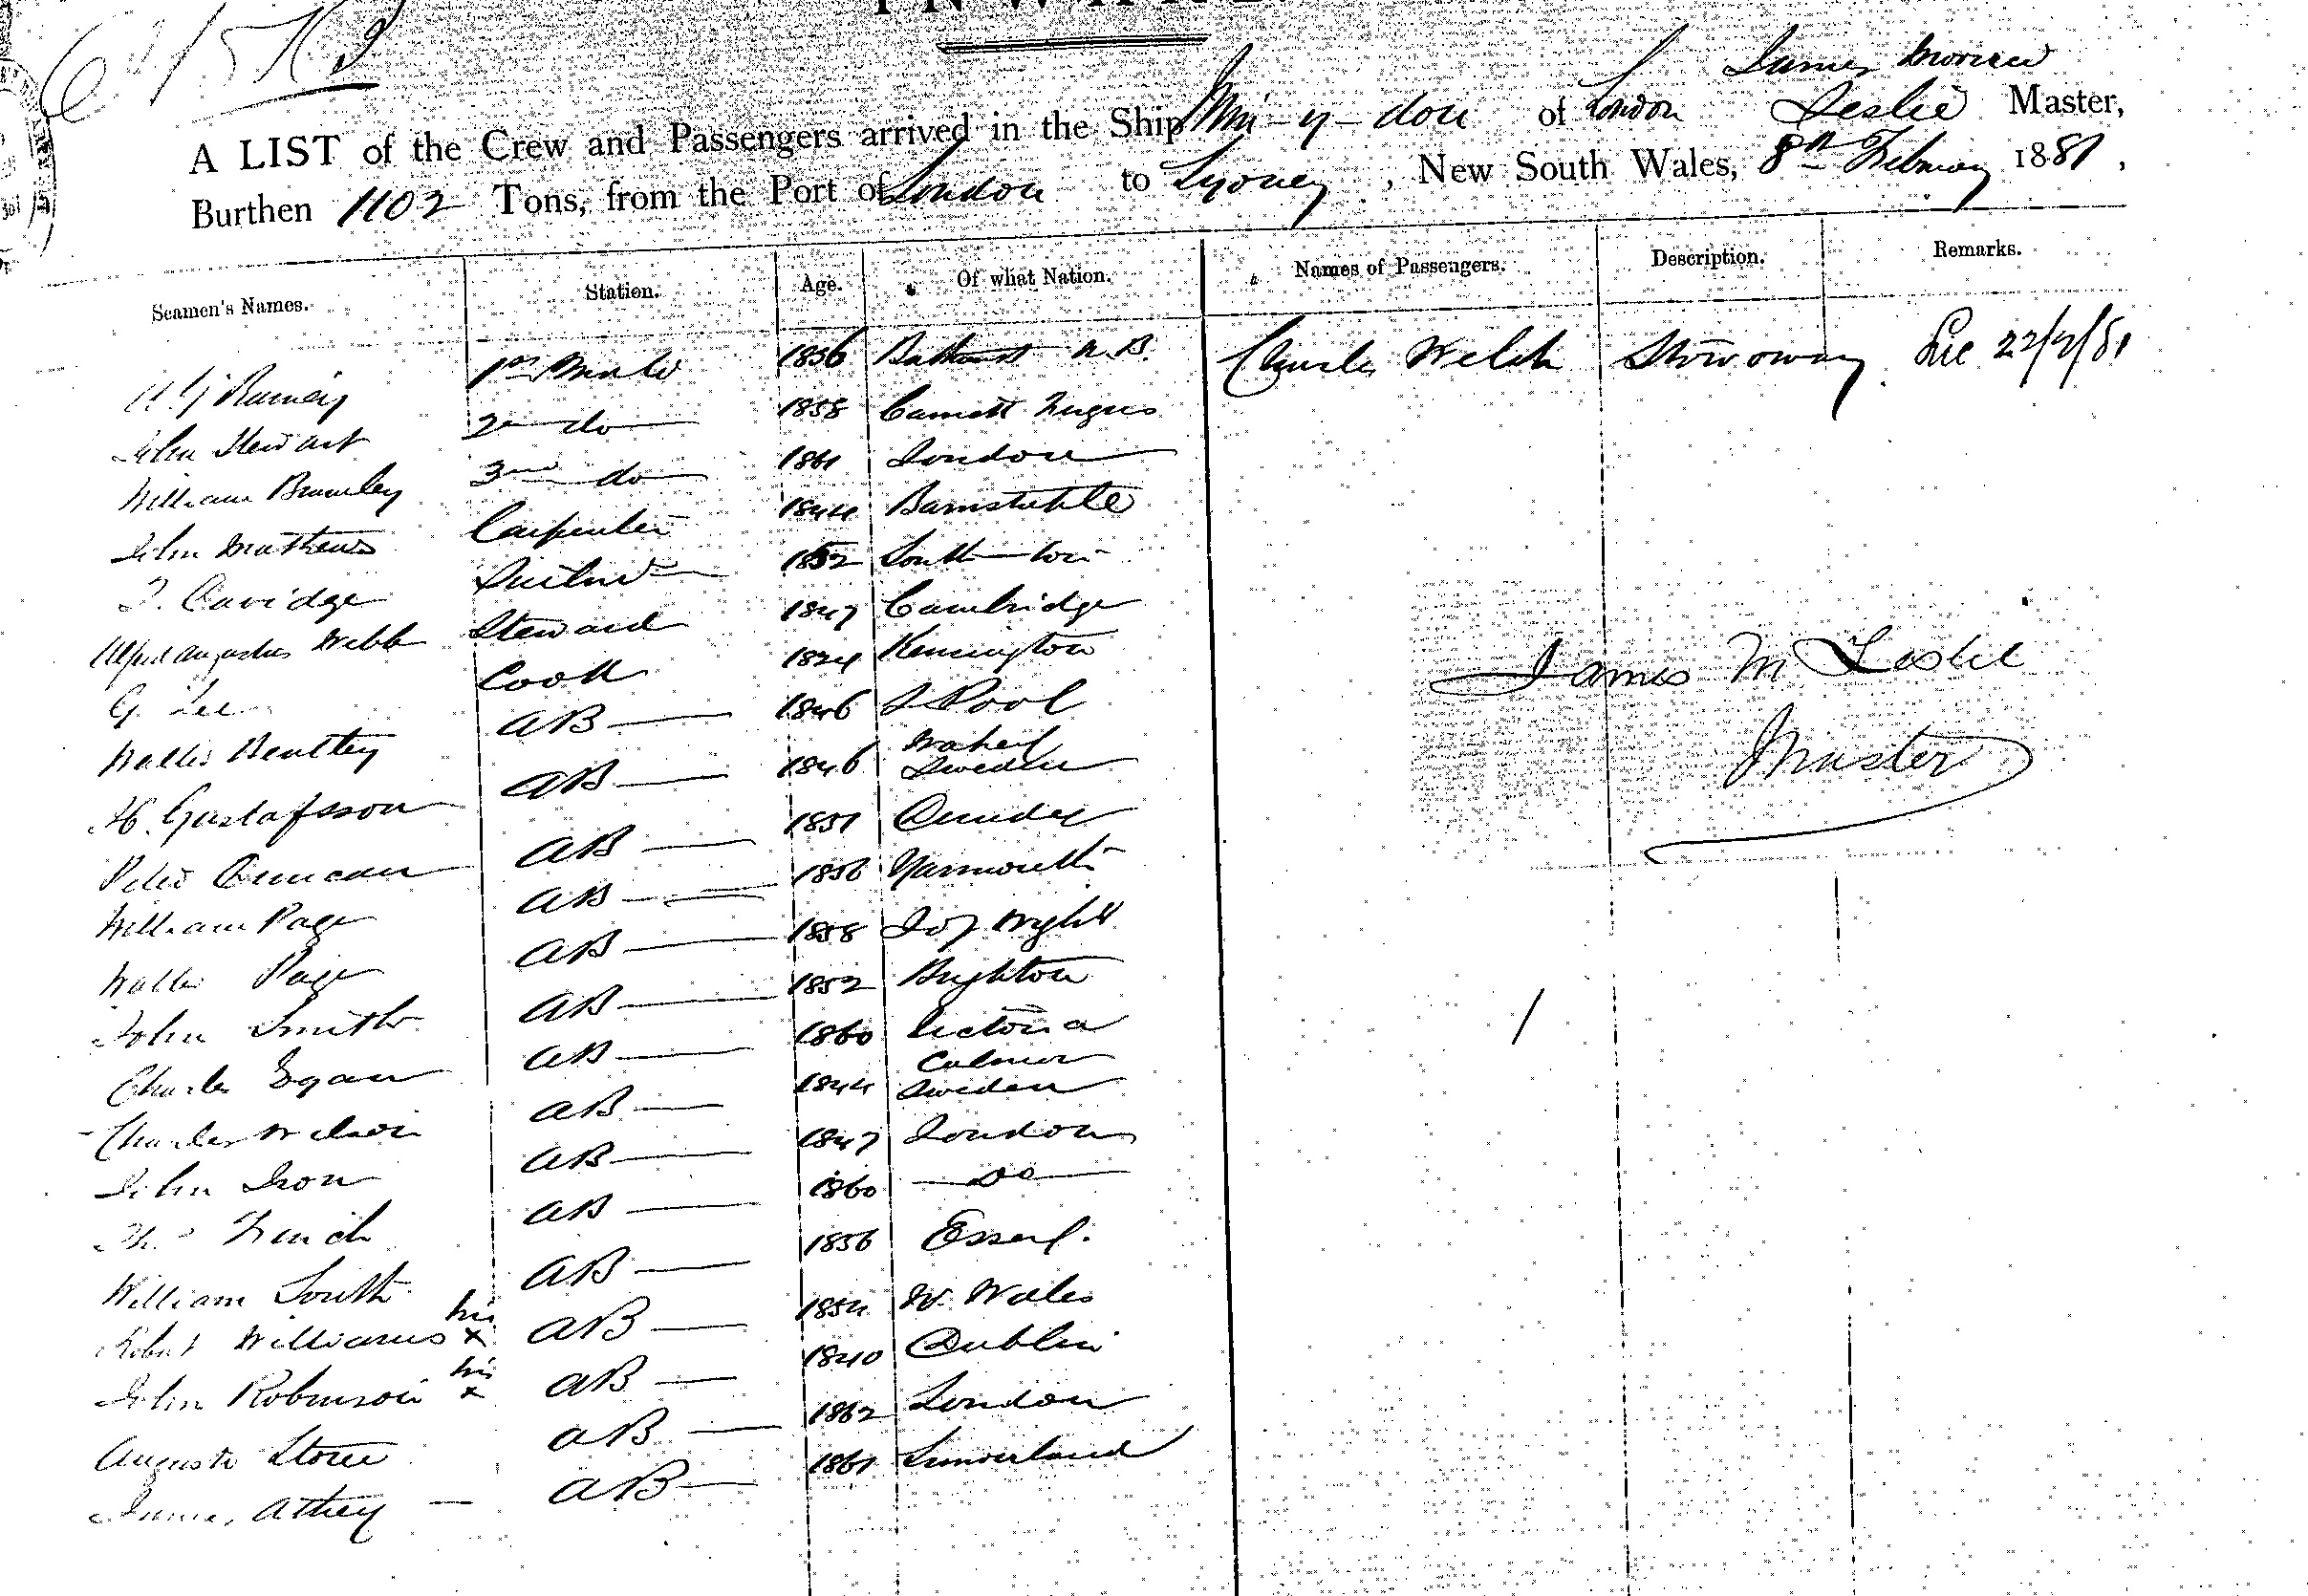 INWARD
James Morrice
A LIST of the Crew and Passengers arrived in the Ship Min-y-don of London Leslie Master,
Burthen 1102 Tons, from the Port of London to Sydney, New South Wales, 8th February 1881,
Seamen's Names. Station. Age. Of what Nation. Names of Passengers. Description. Remarks.
1st Mate 1856 Bathurst N.B. Charles Welch Stowaway 22/2/81
John Stewart 2nd do 1858
William Brumley 3rd do 1861 London
John Mathews Carpenter 1844 Barnstaple
T. Davidge 1852 South-ton
Alfred Augustus Webb Steward 1847 Cambridge
G. Lee Cook 1824 Kennington
Walter Bentley AB 1846 L Pool
H. Gustafsson AB 1846 Sweden
Peter Duncan AB 1851 Dundee
William Page AB 1856 Yarmouth
Walter Page AB 1858 I of Wight
John Smith AB 1852 Brighton
Charles Egan AB 1860 Victoria
Charles Nelson AB 1844 Calmer Sweden
John Iron AB 1847 London
French AB 1860 Do
William South AB 1856 Essex.
Robert Williams his x AB 1854 N. Wales
John Robinson his x AB 1840 Dublin
Auguste Stone AB 1862 London
James Athey AB 1861 Sunderland
James M Leslie
Master